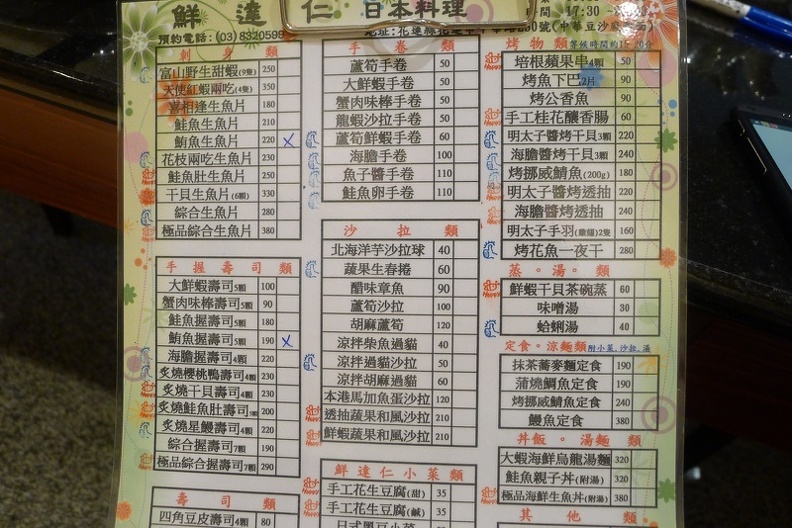 鮮達仁 日本料理
預約電話:(03)8320599
17:30
刺身類
富山野生甜蝦(9隻) 250
天使紅蝦兩吃(4隻) 350
喜相逢生魚片 180
鮭魚生魚片 210
鮪魚生魚片 220 X
花枝兩吃生魚片 230
鮭魚肚生魚片 250
干貝生魚片(6顆) 330
綜合生魚片 280
極品綜合生魚片 380
手握壽司類
大鮮蝦壽司5顆 100
蟹肉味棒壽司5顆 90
鮭魚握壽司5顆 180
鮪魚握壽司5顆 190 X
海膽握壽司4顆 220
炙燒櫻桃鴨壽司4顆 230
炙燒干貝壽司4顆 230
炙燒鮭魚肚壽司3顆 200
炙燒星鰻壽司4顆 220
綜合握壽司7顆 190
極品綜合握壽司7顆 290
壽司類
四角豆皮壽司4顆 80
手卷類
蘆筍手卷 50
大鮮蝦手卷 50
蟹肉味棒手卷 50
龍蝦沙拉手卷 50
蘆筍鮮蝦手卷 60
海膽手卷 100
魚子醬手卷 110
鮭魚卵手卷 110
沙拉類
北海洋芋沙拉球 40
蔬果生春捲 60
醋味章魚 90
蘆筍沙拉 100
胡麻蘆筍 120
涼拌柴魚過貓 140
涼拌過貓沙拉 50
涼拌胡麻過貓 60
本港馬加魚蛋沙拉 120
透抽蔬果和風沙拉 210
鮮蝦蔬果和風沙拉 210
鮮達仁小菜類
手工花生豆腐(甜) 35
手工花生豆腐(鹹) 35
烤物類 等候時間約15-20分
培根蘋果串4顆 50
烤魚下巴2片 90
烤公香魚 90
手工桂花釀香腸 60
明太子醬烤干貝3顆 220
海膽醬烤干貝3顆 240
烤挪威鯖魚(200g) 180
明太子醬烤透抽 220
海膽醬烤透抽 240
明太子手羽(雞翅)2隻 160
烤花魚一夜干 280
蒸。湯。類
鮮蝦干貝茶碗蒸 60
味噌湯 30
蛤蜊湯 40
定食。涼麵類 附小菜、沙拉、湯
抹茶蕎麥麵定食 190
蒲燒鯛魚定食 190
烤挪威鯖魚定食 240
鰻魚定食 380
丼飯。湯麵類
大蝦海鮮烏龍湯麵 320
鮭魚親子丼(附湯) 320
極品海鮮生魚丼(附湯) 380
其他類